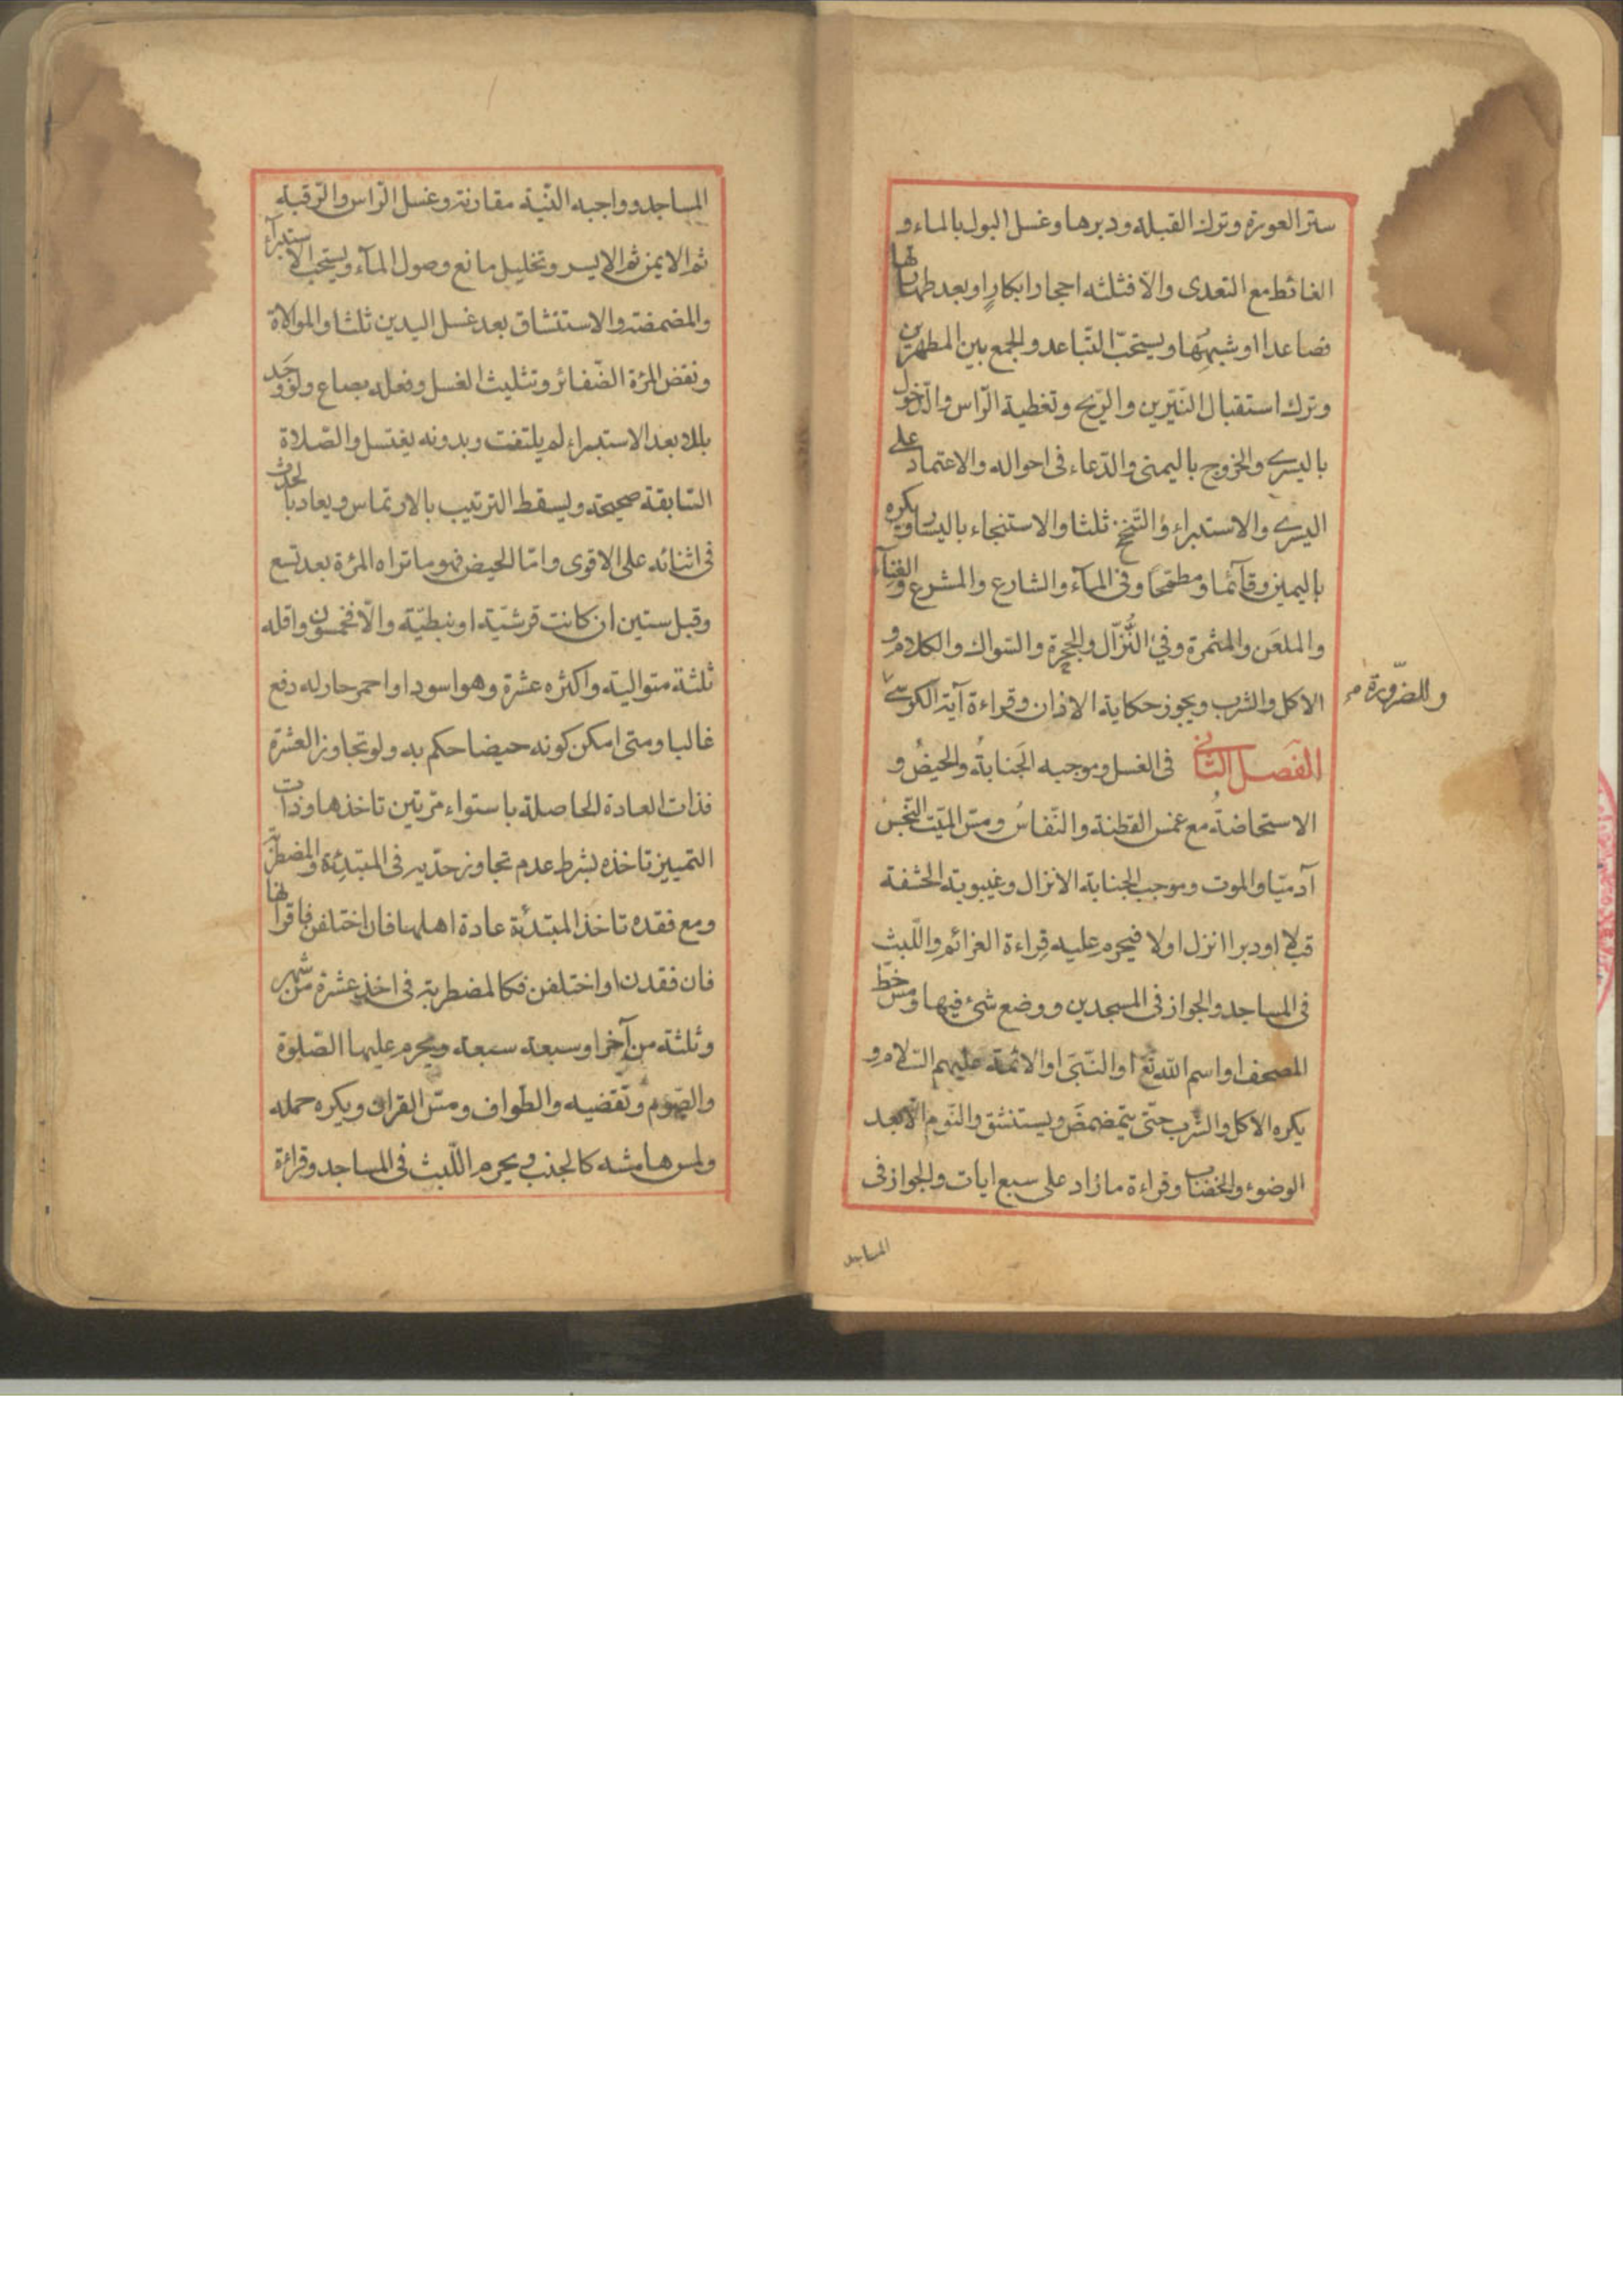 ستر العورة وترك القبلة ودبرها وغسل البول بالماء و
الغائط مع التعدى والّا فثلثه احجار ابكارٍ او بعد طهارتها
فصاعدا او شبهِهَا ويستحبّ التّباعد والجمع بين المطهرين
وترك استقبال النّيّرين والرّيح وتغطية الرّاس والدّخول
باليسرے والخروج باليمنى والدّعاء فى احواله والاعتماد على
اليسرے والاستبراء والتّنحنح ثلثا والاستنجاء باليسار ويكره
باليمين وقآئما ومطمّحا وفى المآء والشارع والمشرع والفنآء
والملعَن والمثمرة وفئ النُّزّال والجحِرة والسّواك والكلام و
الاكل والشرب ويجوز حكاية الاذان وقراءة آية الكرسے
وللضّرورة
الفصل الثانے فى الغسل وموجبه الجَنابةُ والحيضُ و
الاستحاضةُ مع غمس القطنة والنّفاسُ ومسّ الميّت النّجسُ
آدميّا والموت وموجب الجنابة الانزال وغيبوبة الحشفة
قبلا او دبرا انزل اولا فيحرم عليه قِراءة العزائم واللّبث
فى المساجد والجواز فى المسجدين ووضع شئ فيها ومسّ خطّ
المصحف او اسم الله تع او النّبىّ او الائمة عليهم السّلام و
يكره الاكل والشّرب حتّى يتمضمضَ ويستنشق والنّوم الّا بعد
الوضوء والخضاب وقراءة مازاد على سبع ايات والجواز فى
المساجد
المساجد وواجبه النّيّة مقارنة وغسل الرّاس والرّقبة
ثم الايمن ثم الايسر وتخليل مانع وصول المآء ويستحب الاستبرآء
والمضمضة والاستنشاق بعد غسل اليدين ثلثا والموالاة
ونقض المرْة الضّفائر وتثليث الغسل وفعله بصاع ولو وجد
بللا بعد الاستبراء لم يلتفت وبدونه يغتسل والصّلاة
السّابقة صحيحة ويسقط الترتيب بالارتماس ويعاد بالحدث
فى اثنائه على الاقوى وامّا الحيض فهو ماتراه المرْة بعد تسع
وقبل ستين ان كانت قرشيّة او نبطيّة والّا فخمسون واقله
ثلثة متوالية واكثره عشرة وهو اسود او احمر حار له دفع
غالبا ومتى امكن كونه حيضا حكم به ولو تجاوز العشرة
فذات العادة الحاصلة باستواء مرّتين تاخذها وذات
التمييز تاخذه بشرط عدم تجاوز حدّيه فى المبتدِئة والمضطربة
ومع فقده تاخذ المبتدئة عادة اهلها فان اختلفن فاقرانها
فان فقدن او اختلفن فكالمضطربة فى اخذ عشرة من شهر
وثلثة من آخر او سبعة سبعة ويحرم عليها الصّلوة
والصّوم وتقضيه والطّواف ومسّ القران ويكره حمله
ولمس هامشه كالجنب ويحرم اللّبث فى المساجد وقراءة